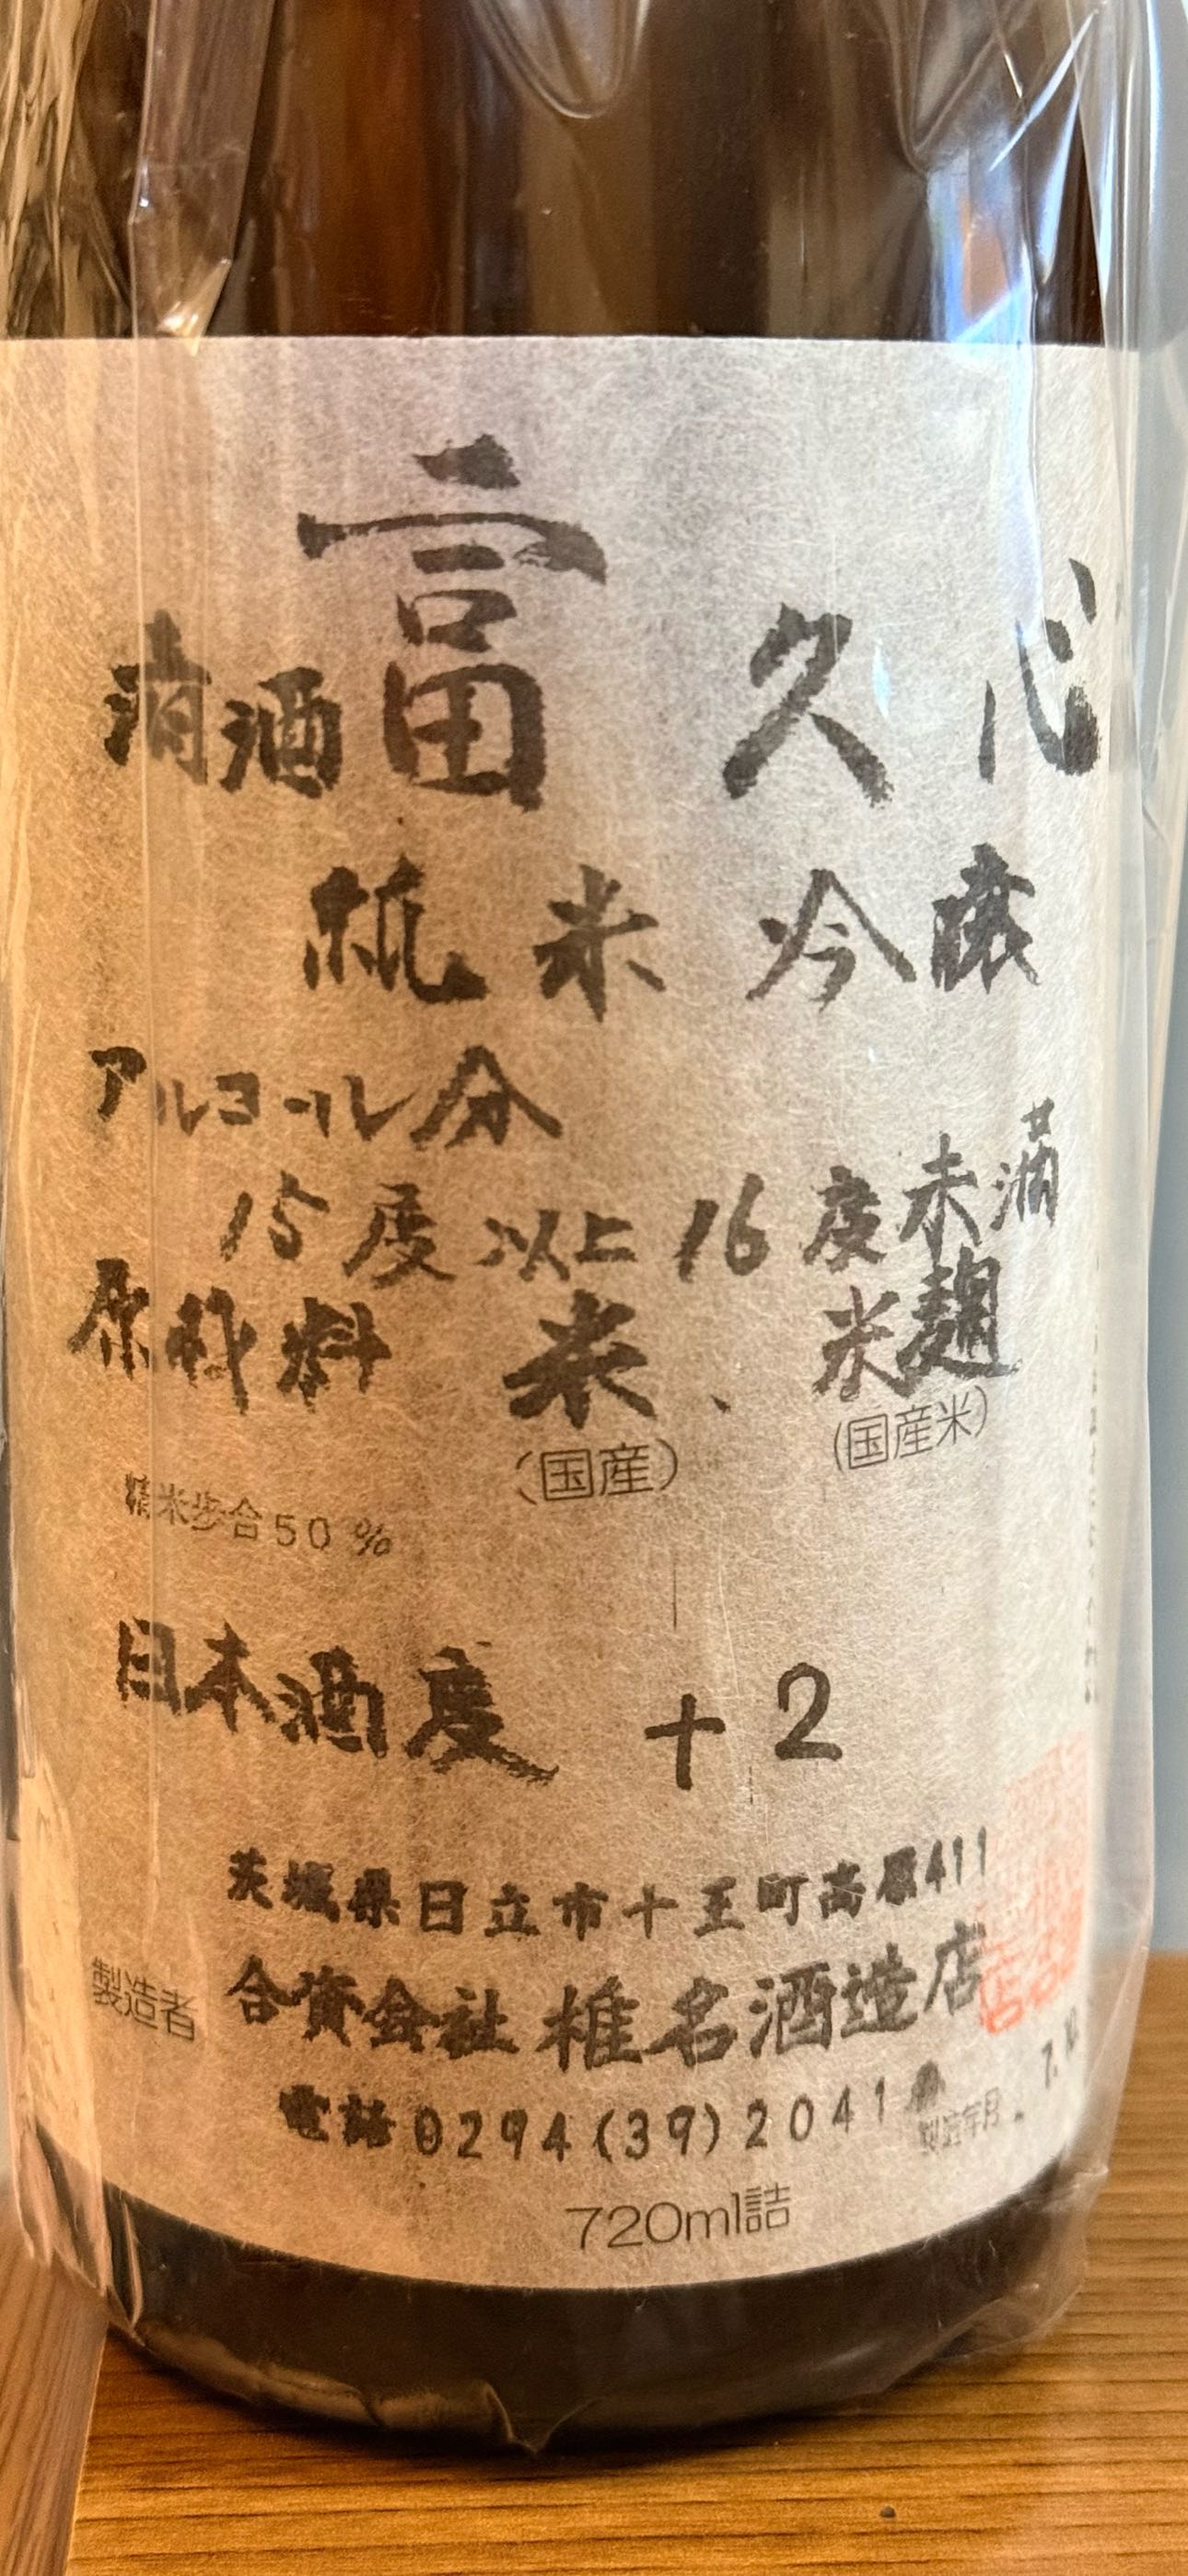 清酒 富久心
純米吟醸
アルコール分
15度以上16度未満
原材料 米、米麹
(国産) (国産米)
精米歩合50%
日本酒度 +2
茨城県日立市十王町高原411
製造者 合資会社 椎名酒造店
電話0294(39)2041
製造年月 7.
720ml詰